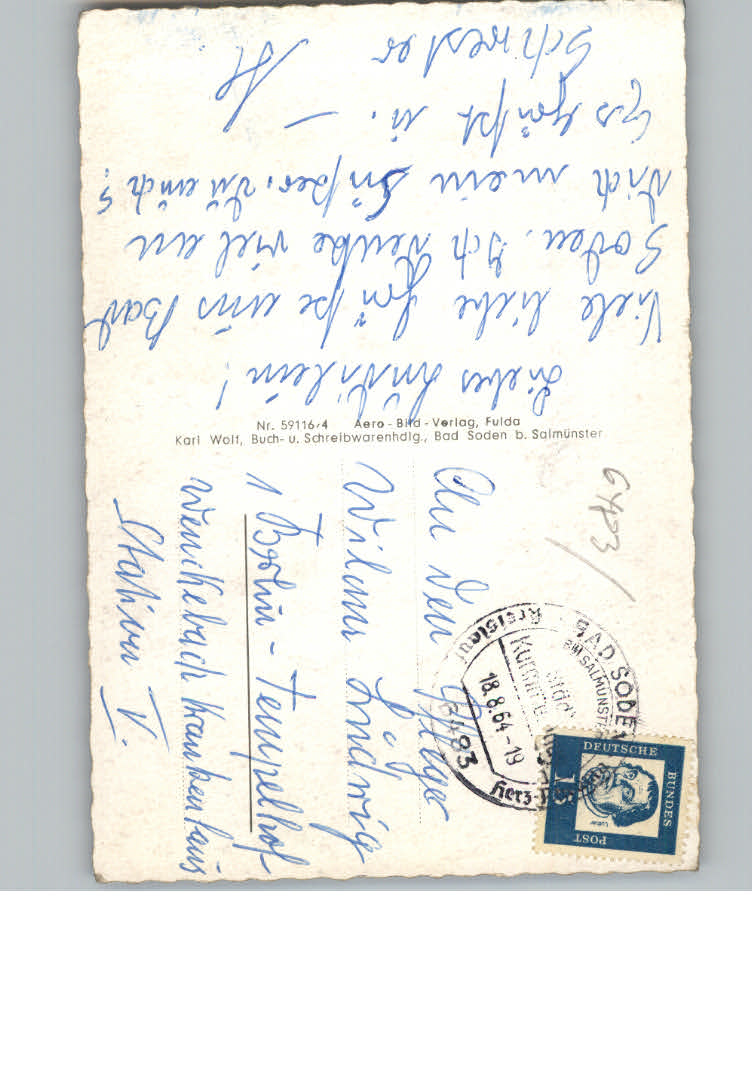 Liebes Ludilein!
Viele liebe Grüße aus Bad
Soden. Ich denke viel an
Dich mein Süßer. Du auch?
Es grüßt u. –
Schwester
Nr. 59116/4 Aero-Bild-Verlag, Fulda
Karl Wolf, Buch- u. Schreibwarenhdlg., Bad Soden b. Salmünster
6483/
An den Pfleger
Wilem Ludwig
1 Berlin-Tempelhof
Wenckebach Krankenhaus
Station V.
BAD SODEN
BEI SALMÜNSTER
18.8.64-19
6483
Herz-
Kreislauf
DEUTSCHE
BUNDES
POST
Luther